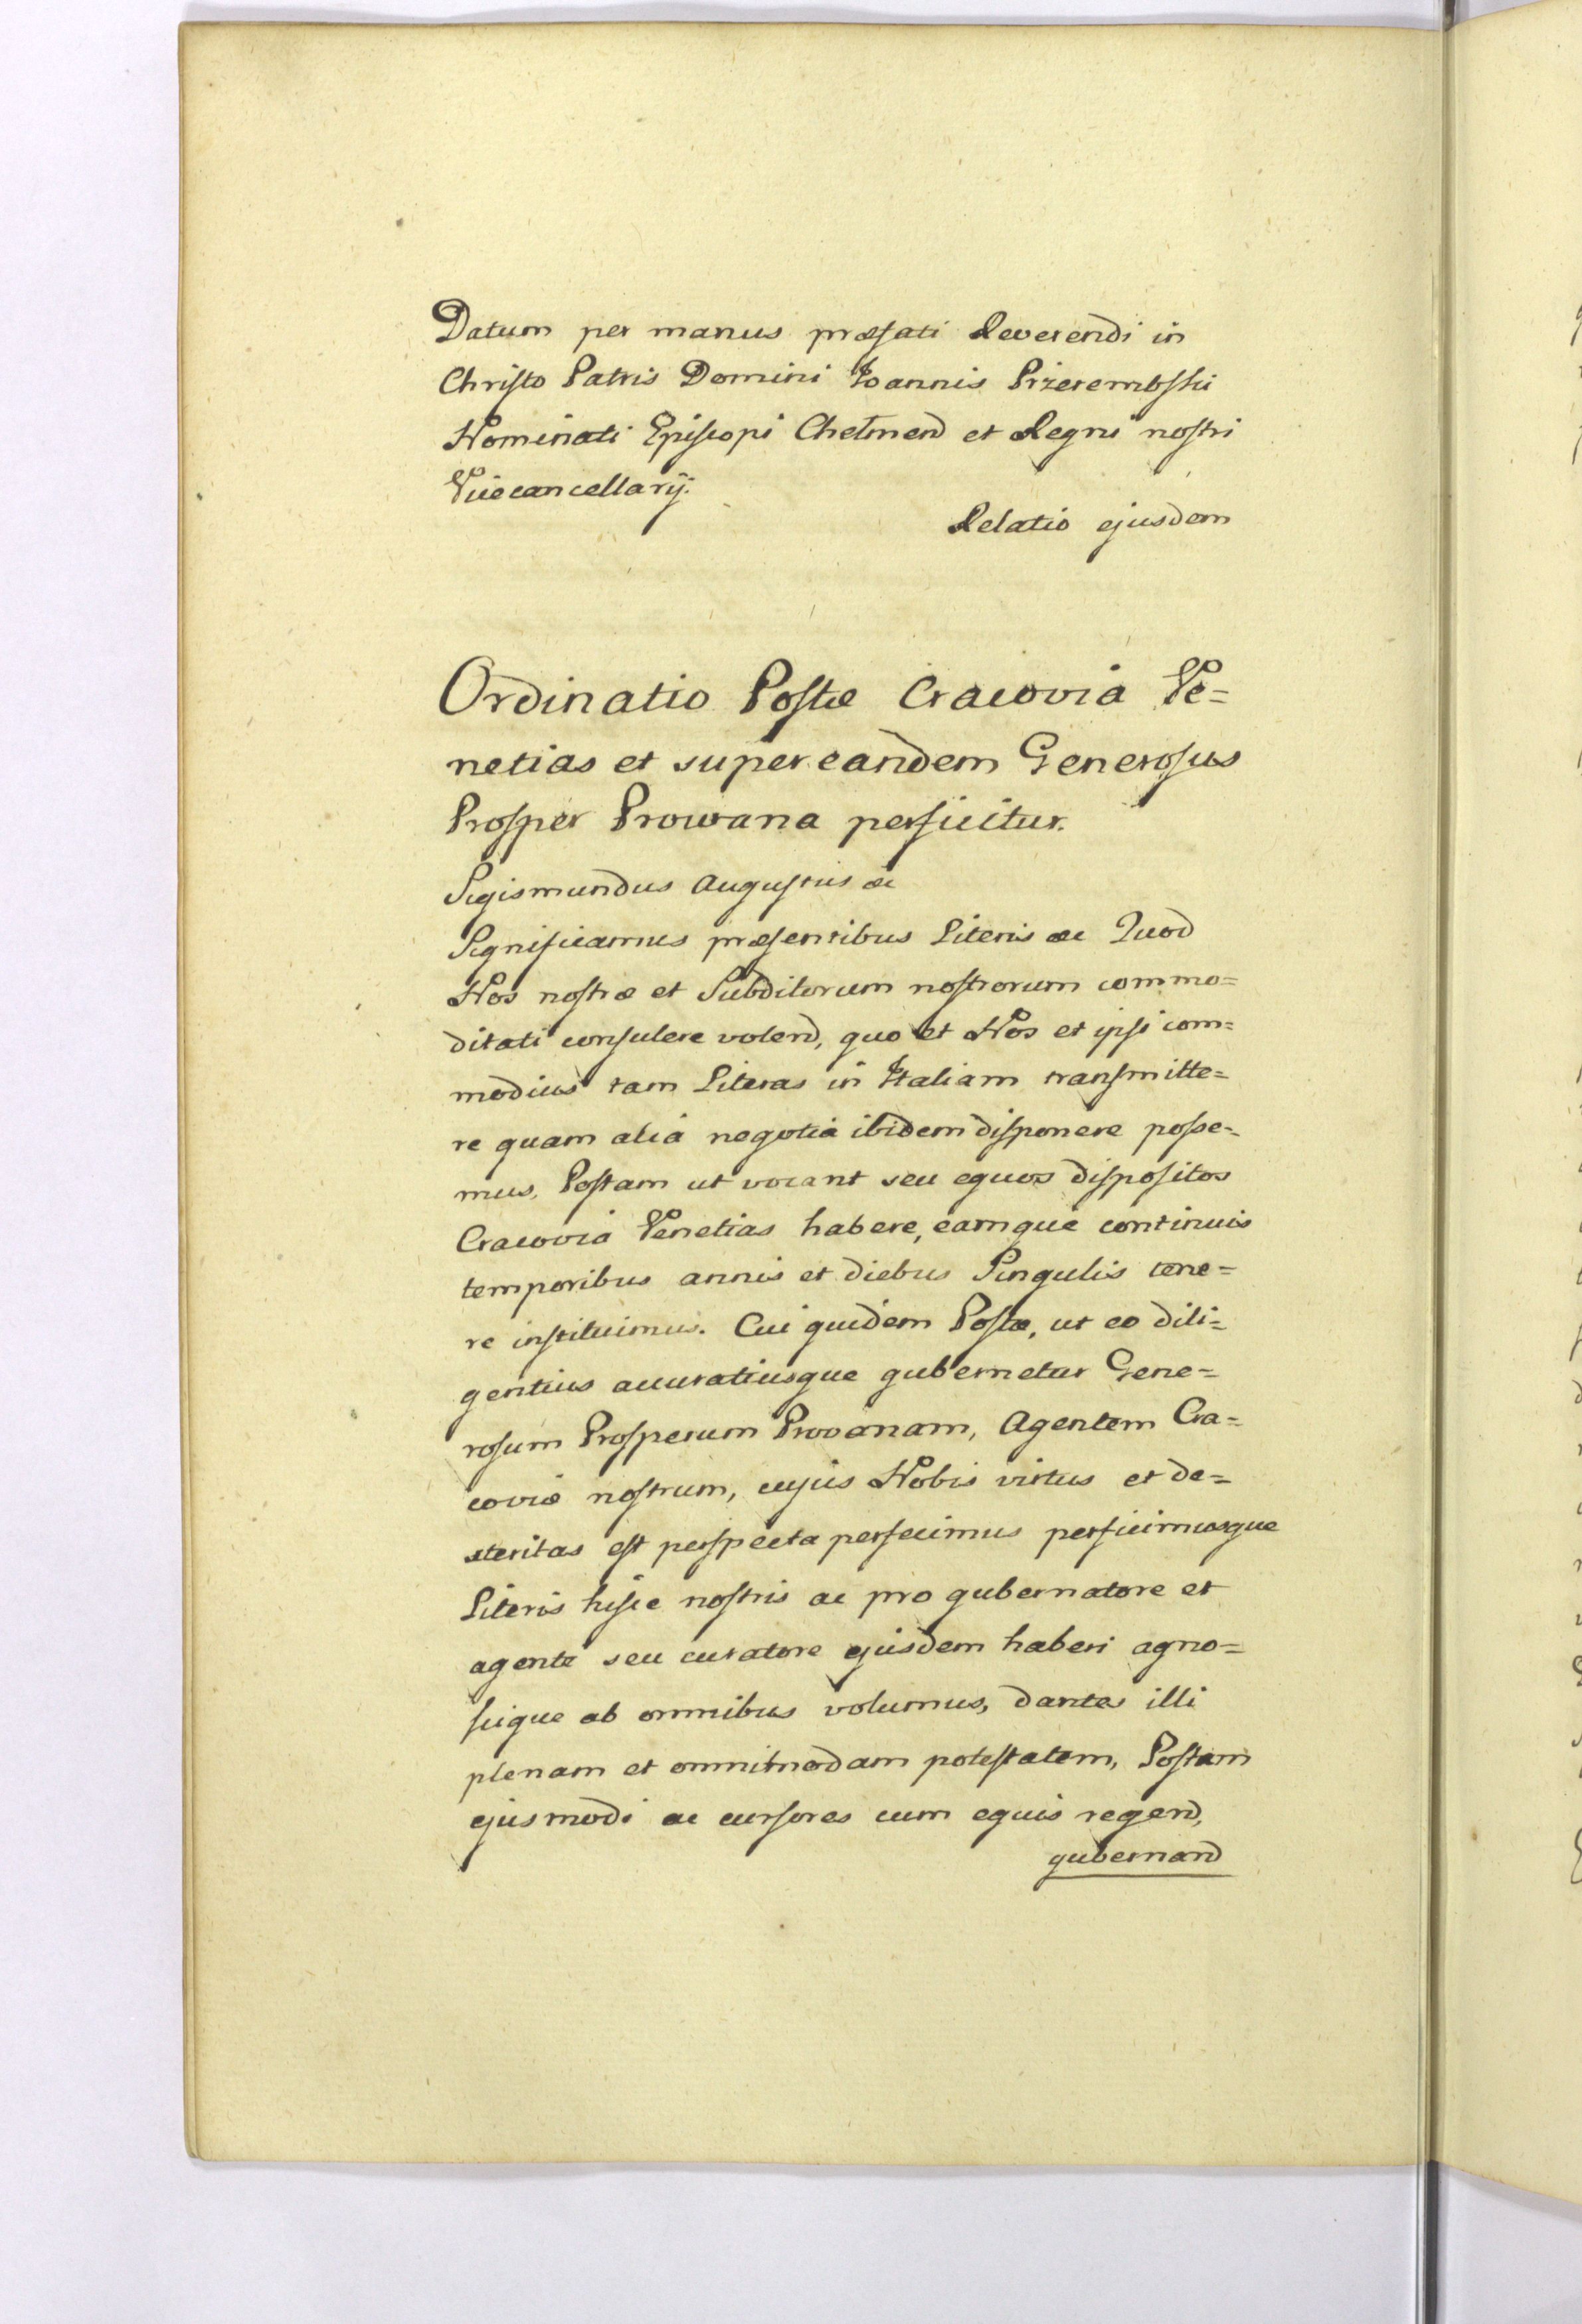 Datum per manus præfati Reverendi in
Christo Patris Domini Joannis Przerembskii
Nominati Episcopi Chełmend et Regni nostri
Vicecancellarij.
Relatio ejusdem
Ordinatio Postæ Cracovia Ve=
netias et super eandem Generosus
Prosper Prowana perficitur.
Sigismundus Augustus &c
Significamus præsentibus Literis &c Quod
Nos nostræ et Subditorum nostrorum commo=
ditati consulere volend, quo et Nos et ipsi com=
modius tam Literas in Italiam transmitte=
re quam alia negotia ibidem disponere posse=
mus, Postam ut vocant seu equos dispositos
Cracovia Venetias habere, eamque continuis
temporibus annis et diebus Singulis tene=
re instituimus. Cui quidem Postæ, ut eo dili=
gentius accuratiusque gubernetur Gene=
rosum Prosperum Provanam, Agentem Cra=
coviæ nostrum, cujus Nobis virtus et de=
xteritas est perspecta perfecimus perficimusque
Literis hisce nostris ac pro gubernatore et
agente seu curatore ejusdem haberi agno=
scique ab omnibus volumus, dantes illi
plenam et omnimodam potestatem, Postam
ejusmodi ac cursores cum equis regend,
gubernand